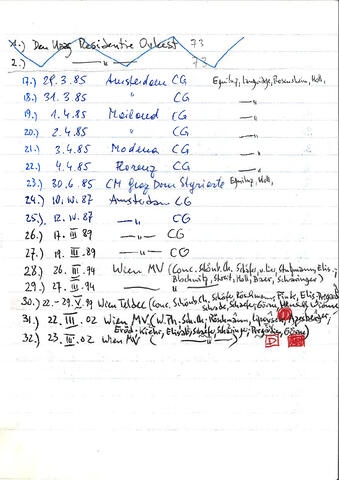 1.) Den Haag Residentie Orkest 73
2.) —"— 73
17.) 29.3.85 Amsterdam CG Equiluz, Langridge, Rosenshein, Holl,
18.) 31.3.85 " CG —"—
19.) 1.4.85 Mailand CG —"—
20.) 2.4.85 " CG —"—
21.) 3.4.85 Modena CG —"—
22.) 4.4.85 Florenz CG —"—
23.) 30.6.85 CM Graz Dom Styriarte Equiluz, Holl,
24.) 10.IV.87 Amsterdam CG
25.) 12.IV.87 —"— CG
26.) 17.III 89 —"— CG
27.) 19.III 89 —"— CG
28.) 26.III.94 Wien MV (Conc. Schönb. Ch. Schäfer, v.
Blochwitz, Holl, Scharinger)
29.) 27.III.94 —"—
30.) 22.-29.V. Wien Teldec (Conc. Schönb. Ch. Schäfer, Röschmann, Fink, Elis.
Schade, Schäfer, Görne,
31.) 22.III.02 Wien MV (W.Ph. Sch. Ch. Röschmann, Lipovsek,
Schade, Scharinger,
32.) 23.III.02 Wien MV (—"—)
D